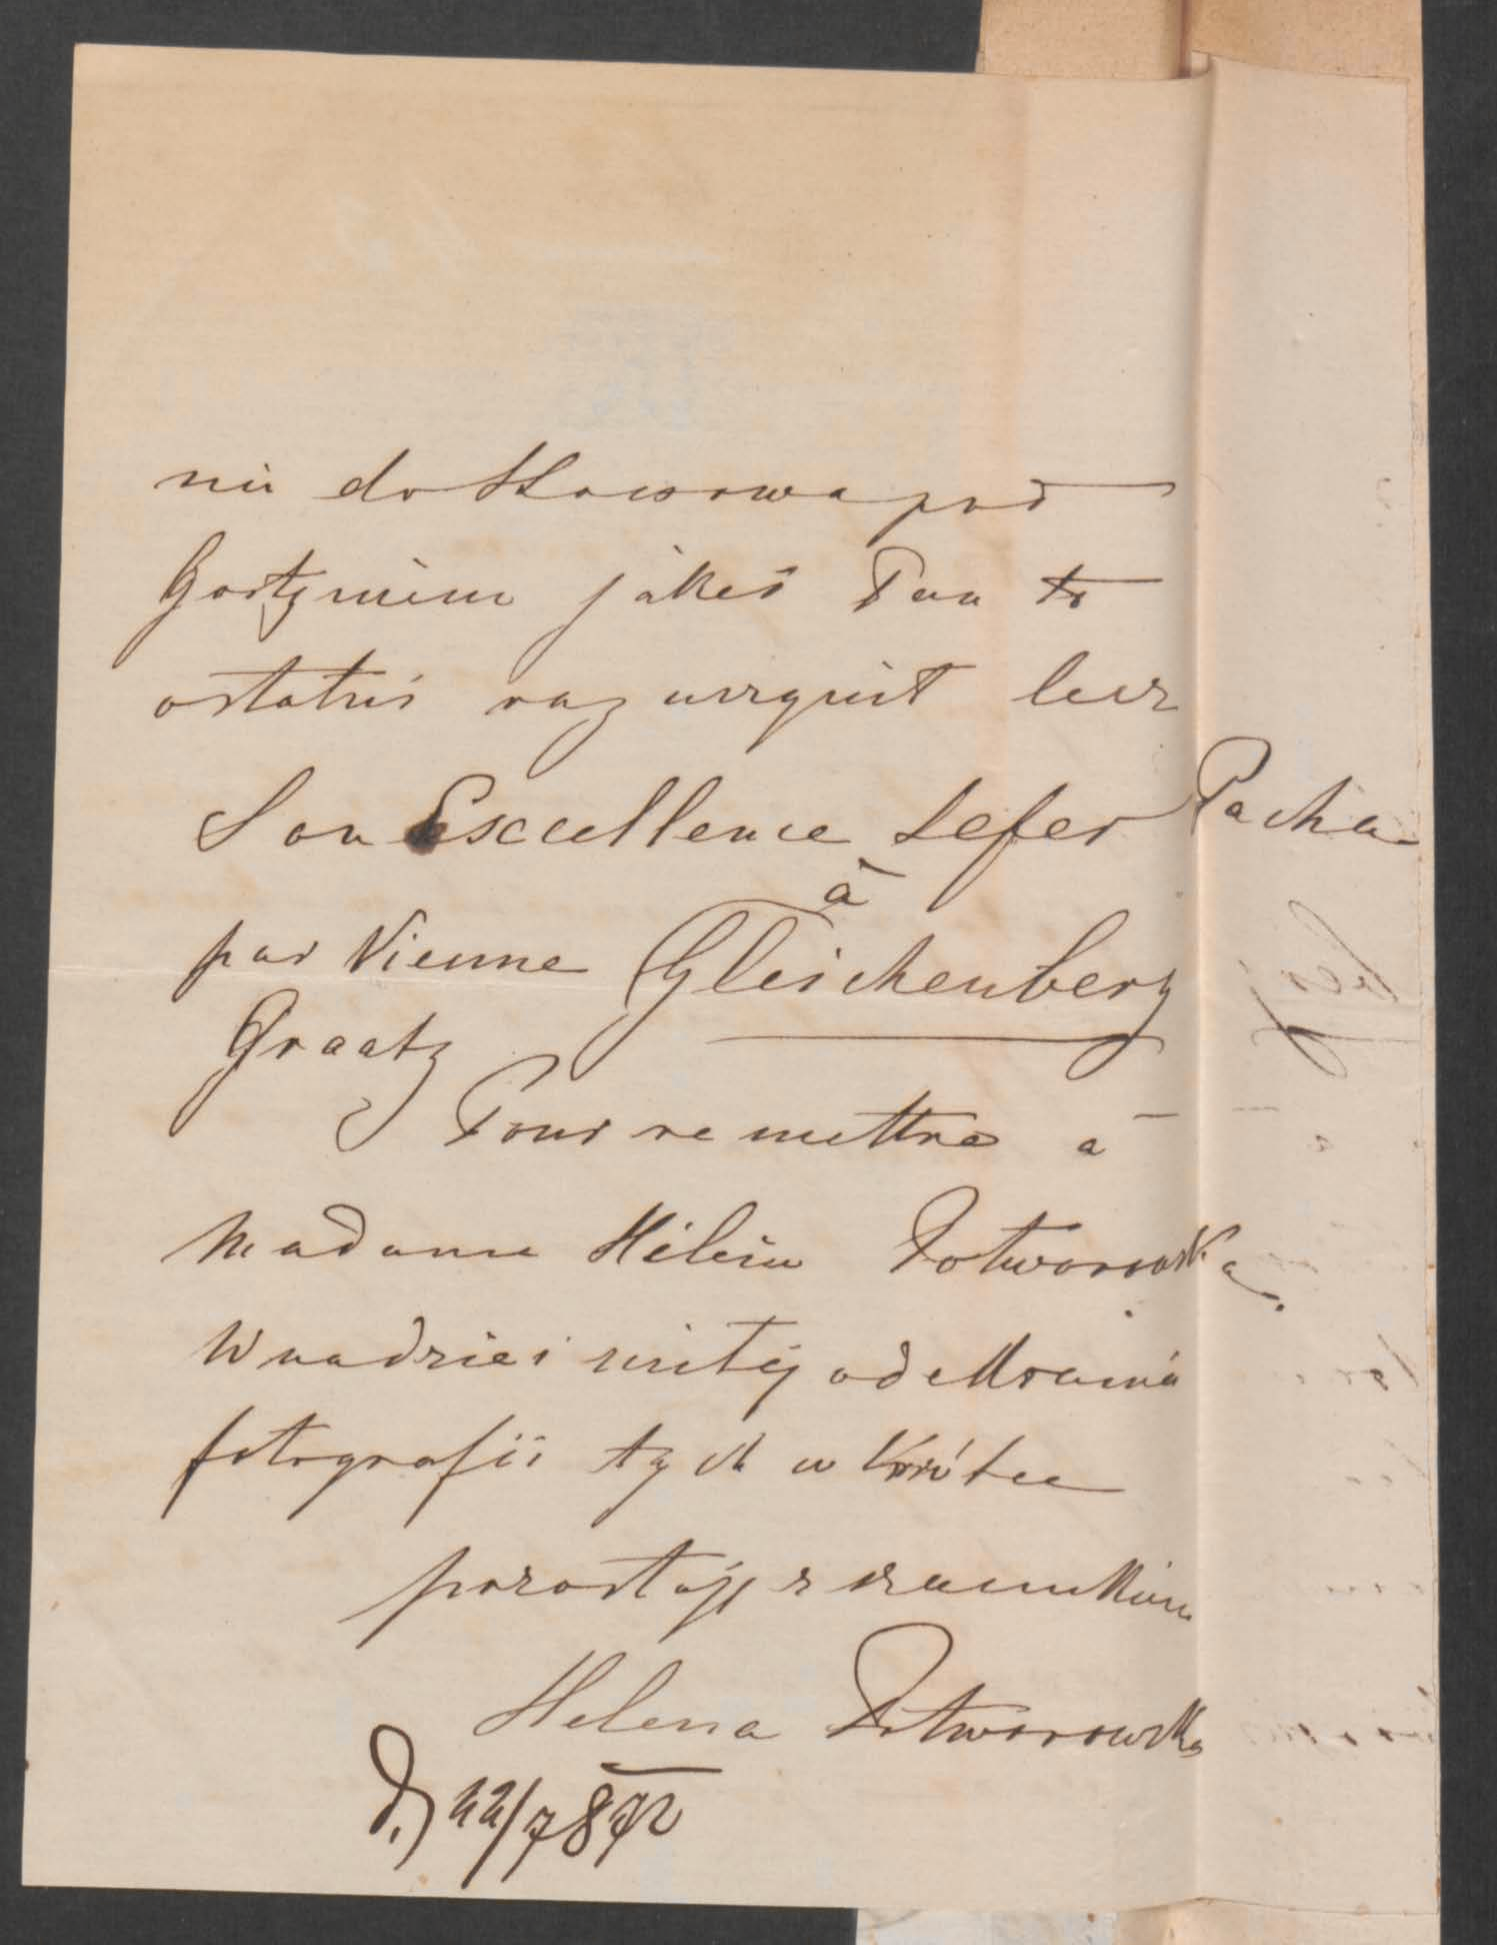 nie do Kossowa pod
Gostyniem jakeś Pan to
ostatni raz uczynił lecz
Son Excellence Sefer Pacha
à
par Vienne Gleichenberg
Graatz
Pour remettre à
Madame Hélène Potworowska.
W nadziei żiścić odebrania
fotografii tych w krótce
pozostaję z szacunkiem
Helena Potworowska
D. 22/7 872